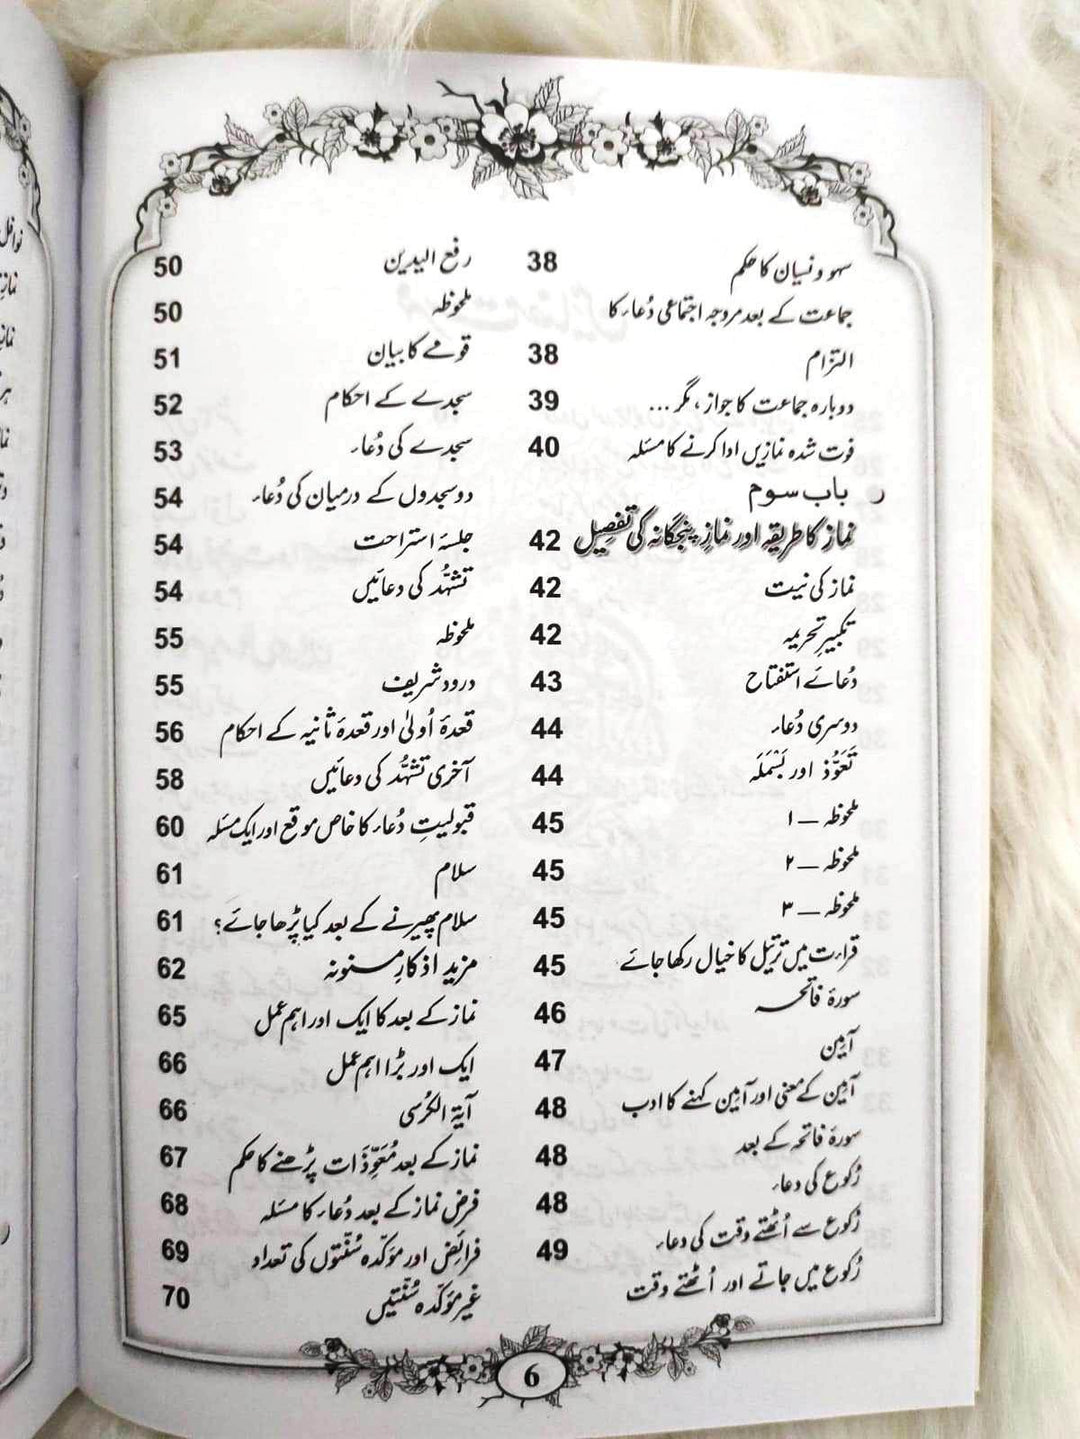 سہو ونسیان کا حکم 38
جماعت کے بعد مروجہ اجتماعی دُعاء کا
التزام 38
دوبارہ جماعت کا جواز، مگر ... 39
فوت شدہ نمازیں ادا کرنے کا مسئلہ 40
باب سوم
نماز کا طریقہ اور نمازِ پنجگانہ کی تفصیل 42
نماز کی نیت 42
تکبیرِ تحریمہ 42
دُعائے استفتاح 43
دوسری دُعاء 44
تَعَوُّذ اور بَسْمَلَہ 44
ملحوظہ — ۱ 45
ملحوظہ — ۲ 45
ملحوظہ — ۳ 45
قراءت میں ترتیل کا خیال رکھا جائے 45
سورۂ فاتحہ 46
آمین 47
آمین کے معنی اور آمین کہنے کا ادب 48
سورۂ فاتحہ کے بعد 48
رُکوع کی دعاء 48
رُکوع سے اُٹھتے وقت کی دعاء 49
رُکوع میں جاتے اور اُٹھتے وقت
رفع الیدین 50
ملحوظہ 50
قومے کا بیان 51
سجدے کے احکام 52
سجدے کی دُعاء 53
دو سجدوں کے درمیان کی دُعاء 54
جلسۂ استراحت 54
تشہُّد کی دعائیں 54
ملحوظہ 55
درود شریف 55
قعدۂ اُولیٰ اور قعدۂ ثانیہ کے احکام 56
آخری تشہُّد کی دعائیں 58
قبولیتِ دُعاء کا خاص موقع اور ایک مسئلہ 60
سلام 61
سلام پھیرنے کے بعد کیا پڑھا جائے؟ 61
مزید اذکارِ مسنونہ 62
نماز کے بعد کا ایک اور اہم عمل 65
ایک اور بڑا اہم عمل 66
آیۃ الکرسی 66
نماز کے بعد مُعَوِّذَات پڑھنے کا حکم 67
فرض نماز کے بعد دُعاء کا مسئلہ 68
فرائض اور مؤکدہ سُنّتوں کی تعداد 69
غیر مؤکدہ سُنّتیں 70
6